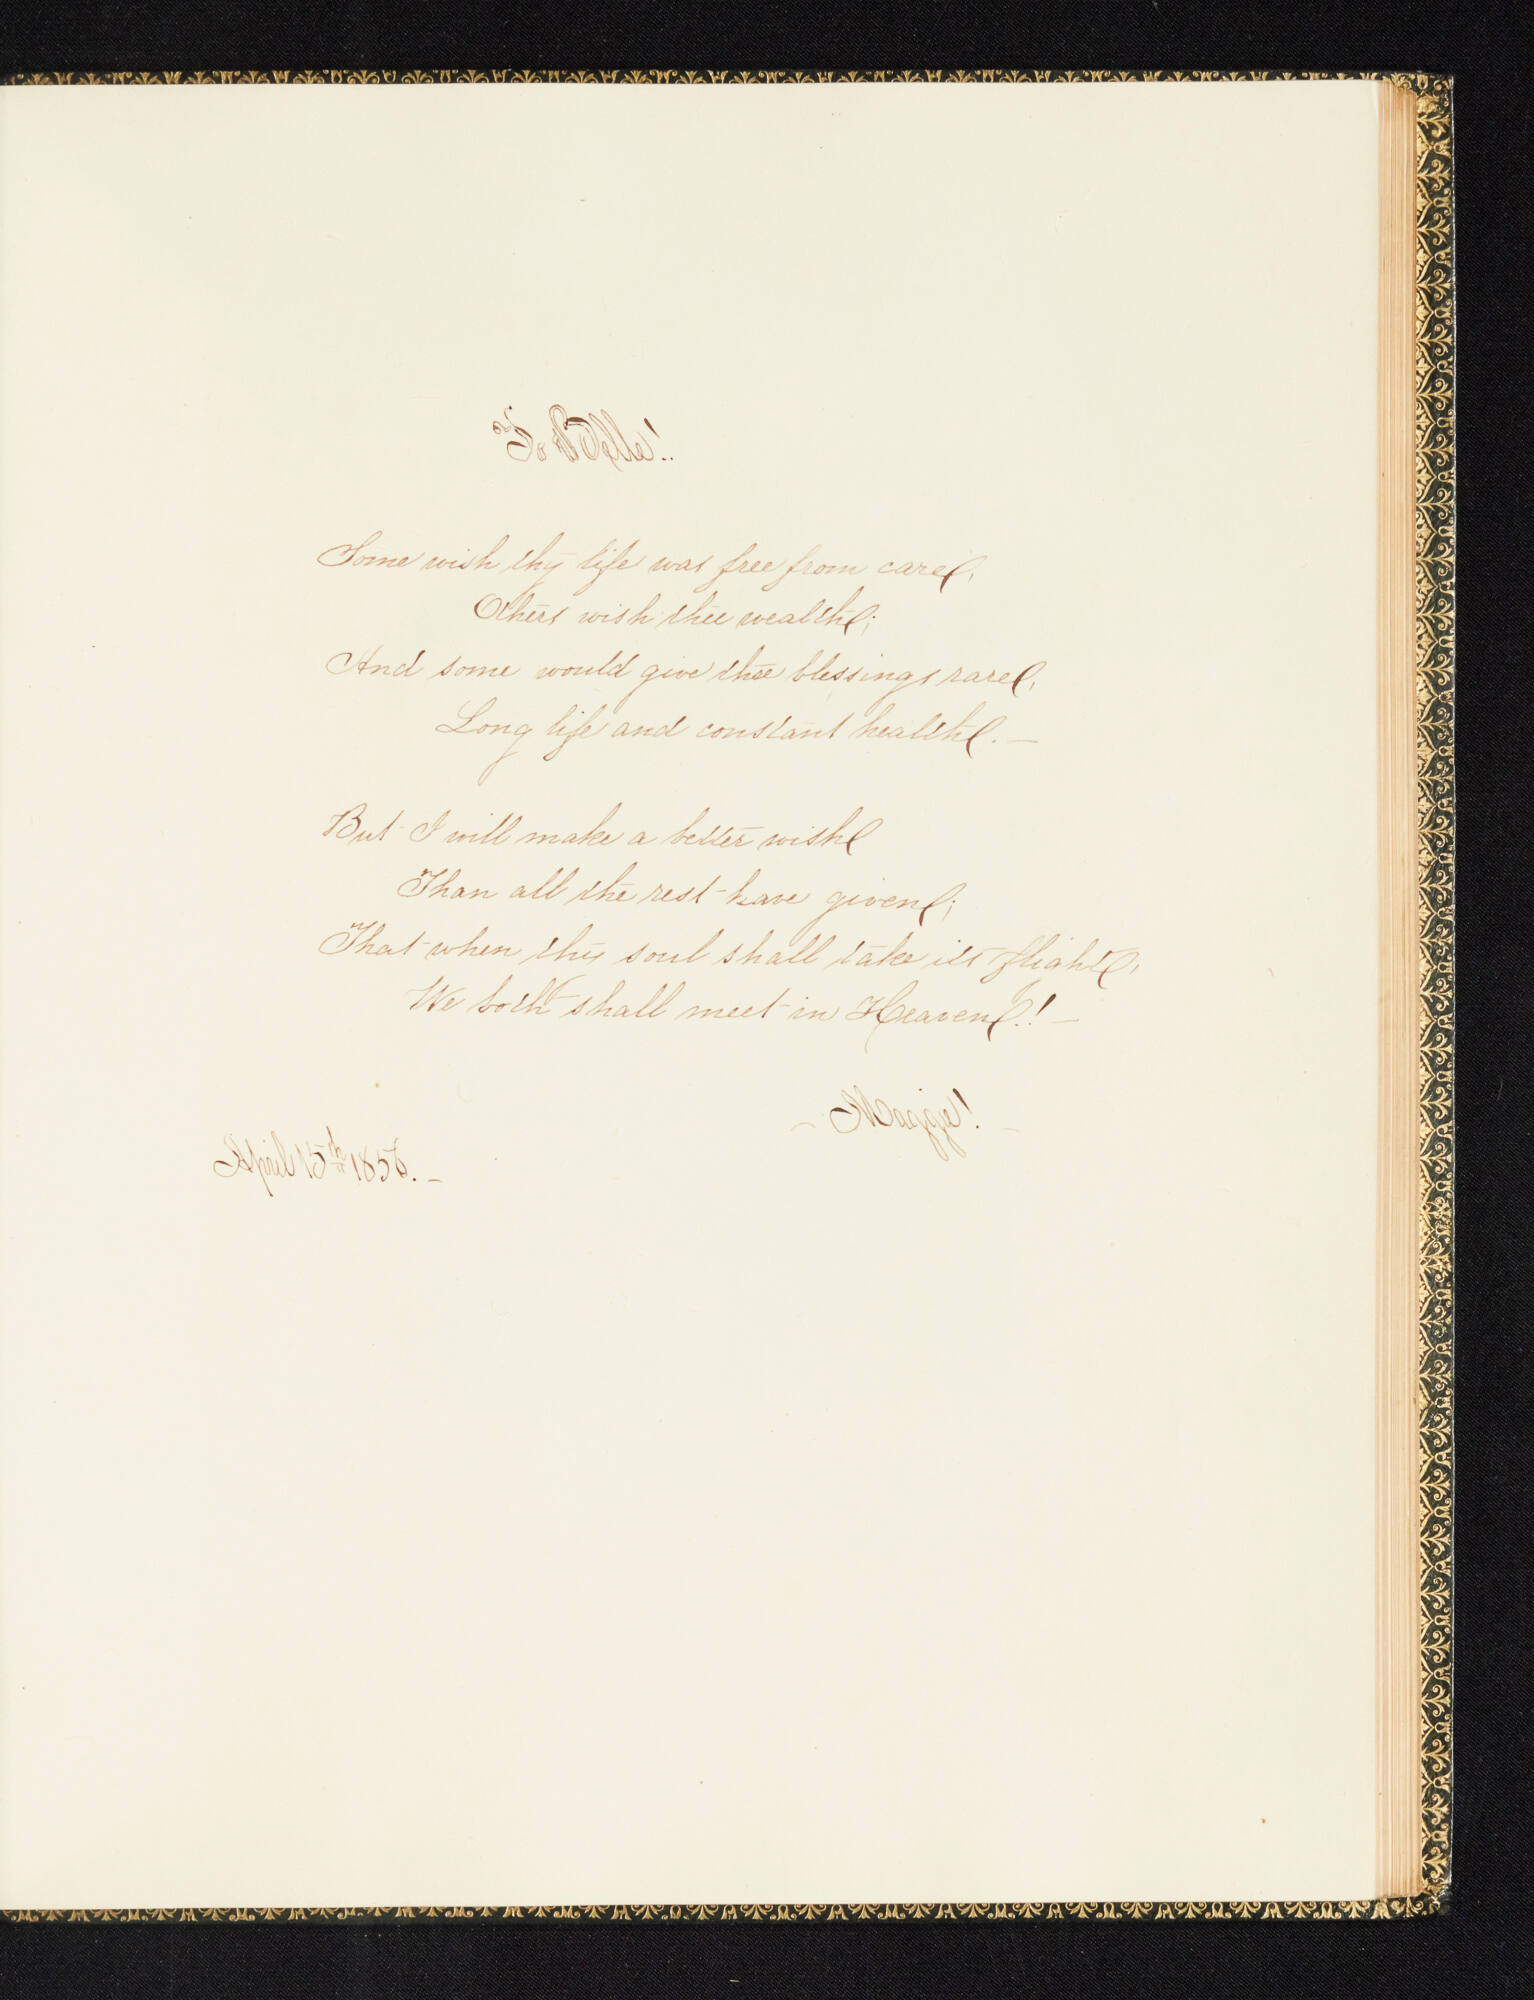 To Belle!
Some wish thy life was free from care,
Others wish thee wealth;
And some would give thee blessings rare,
Long life and constant health. —
But I will make a better wish
Than all the rest have given;
That when thy soul shall take its flight,
We both shall meet in Heaven.! —
— Maggie! —
April 15th 1856. —